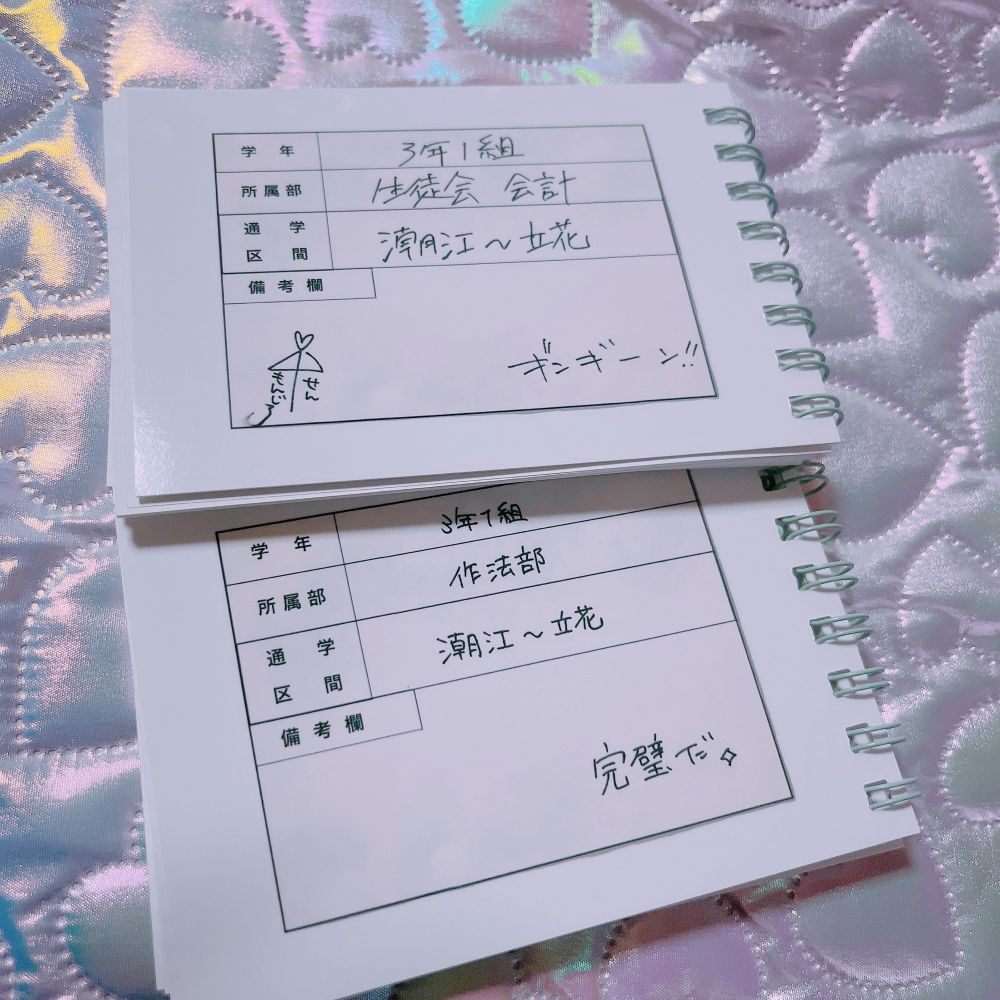 学年 3年1組
所属部 生徒会 会計
通学区間 潮江〜立花
備考欄
せん
もんじ
ギンギーン!!
学年 3年1組
所属部 作法部
通学区間 潮江〜立花
備考欄
完璧だ